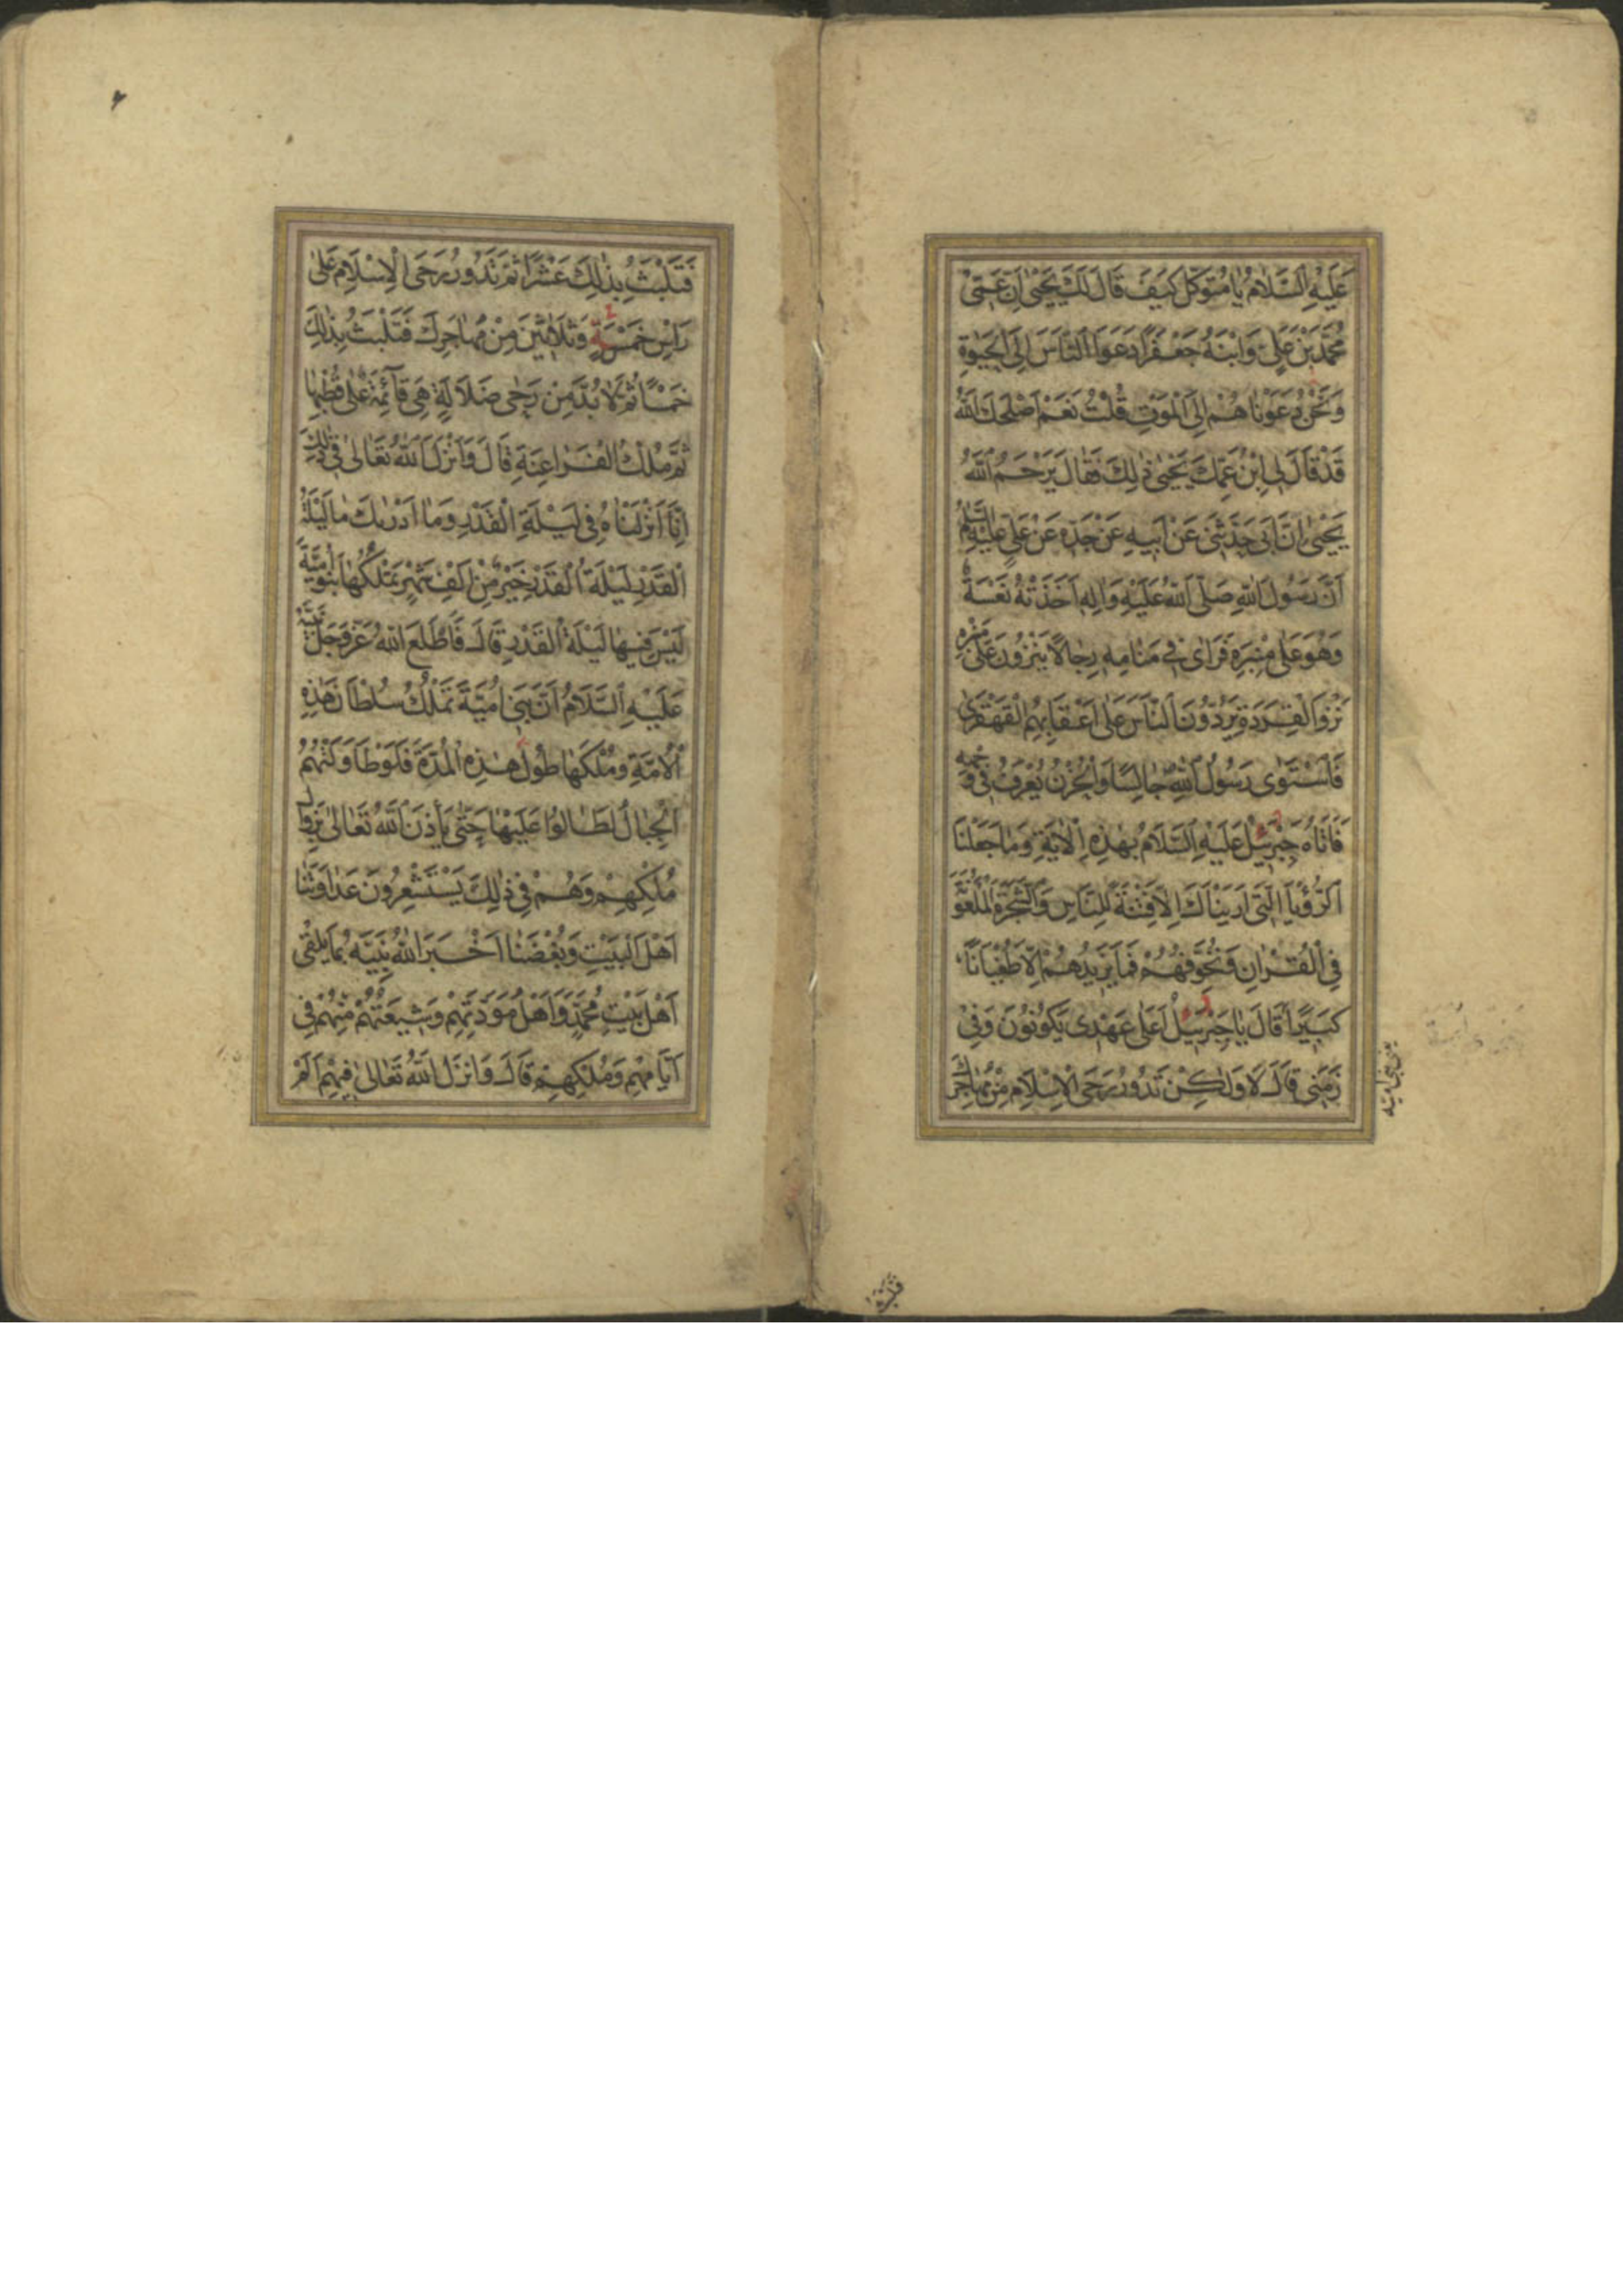 عَلَيْهِ السَّلَامُ يَا مُتَوَكِّلُ كَيْفَ قَالَ لَكَ يَحْيَى اِنَّ عَمّى
مُحَمَّدَ بْنَ عَلِيٍّ وَابْنَهُ جَعْفَرًا دَعَوَا النَّاسَ اِلَى الْحَيٰوةِ
وَنَحْنُ دَعَوْنَاهُمْ اِلَى الْمَوْتِ قُلْتُ نَعَمْ اَصْلَحَكَ اللهُ
قَدْ قَالَ لِى اِبْنُ عَمِّكَ يَحْيَى ذٰلِكَ فَقَالَ يَرْحَمُ اللهُ
يَحْيٰى اِنَّ اَبى حَدَّثَنى عَنْ اَبيهِ عَنْ جَدِّهِ عَنْ عَلِىٍّ عَلَيْهِ السَّلَامُ
اَنَّ رَسُولَ اللهِ صَلَّى اللهُ عَلَيْهِ وَالِهِ اَخَذَتْهُ نَعْسَةٌ
وَهُوَ عَلٰى مِنْبَرِهِ فَرَاٰى فى مَنَامِهِ رِجَالًا يَنْزُونَ عَلٰى مِنْبَرِهِ
نَزْوَ الْقِرَدَةِ يَرُدُّونَ النَّاسَ عَلٰى اَعْقَابِهِمُ الْقَهْقَرٰى
فَاسْتَوٰى رَسُولُ اللهِ جَالِسًا وَالْحُزْنُ يُعْرَفُ فى وَجْهِهِ
فَاَتَاهُ جِبْرَئِيلُ عَلَيْهِ السَّلَامُ بِهٰذِهِ الْاٰيَةِ وَمَا جَعَلْنَا
الرُّؤْيَا الَّتى اَرَيْنَاكَ اِلَّا فِتْنَةً لِلنَّاسِ وَالشَّجَرَةَ الْمَلْعُونَةَ
فِى الْقُرْاٰنِ وَنُخَوِّفُهُمْ فَمَا يَزيدُهُمْ اِلَّا طُغْيَانًا
كَبيرًا قَالَ يَا جِبْرَئيلُ اَعَلٰى عَهْدى يَكُونُونَ وَفى
زَمَنى قَالَ لَا وَلٰكِنْ تَدُورُ رَحَى الْاِسْلَامِ مِنْ مُهَاجَرِكَ
يعنى بنى اميّه
فتلبث
فَتَلْبَثُ بِذٰلِكَ عَشْرًا ثُمَّ تَدُورُ رَحَى الْاِسْلَامِ عَلٰى
رَاْسِ خَمْسَةٍ وَثَلَاثينَ مِنْ مُهَاجَرِكَ فَتَلْبَثُ بِذٰلِكَ
خَمْسًا ثُمَّ لَا بُدَّ مِنْ رَحٰى ضَلَالَةٍ هِىَ قَائِمَةٌ عَلٰى قُطْبِهَا
ثُمَّ مُلْكُ الْفَرَاعِنَةِ قَالَ وَاَنْزَلَ اللهُ تَعَالٰى فى ذٰلِكَ
اِنَّا اَنْزَلْنَاهُ فى لَيْلَةِ الْقَدْرِ وَمَا اَدْرٰيكَ مَا لَيْلَةُ
الْقَدْرِ لَيْلَةُ الْقَدْرِ خَيْرٌ مِنْ اَلْفِ شَهْرٍ تَمْلِكُهَا بَنُو اُمَيَّةَ
لَيْسَ فيهَا لَيْلَةُ الْقَدْرِ قَالَ فَاَطْلَعَ اللهُ عَزَّ وَجَلَّ نَبِيَّهُ
عَلَيْهِ السَّلَامُ اَنَّ بَنى اُمَيَّةَ تَمْلِكُ سُلْطَانَ هٰذِهِ
الْاُمَّةِ وَمُلْكَهَا طُولَ هٰذِهِ الْمُدَّةِ فَلَوْ طَاوَلَتْهُمُ
الْجِبَالُ لَطَالُوا عَلَيْهَا حَتّٰى يَأْذَنَ اللهُ تَعَالٰى بِزَوَالِ
مُلْكِهِمْ وَهُمْ فى ذٰلِكَ يَسْتَشْعِرُونَ عَدَاوَتَنَا
اَهْلَ الْبَيْتِ وَبُغْضَنَا اَخْبَرَ اللهُ نَبِيَّهُ بِمَا يَلْقٰى
اَهْلُ بَيْتِ مُحَمَّدٍ وَاَهْلُ مَوَدَّتِهِمْ وَشيعَتُهُمْ مِنْهُمْ فى
اَيَّامِهِمْ وَمُلْكِهِمْ قَالَ وَاَنْزَلَ اللهُ تَعَالٰى فيهِمْ اَلَمْ